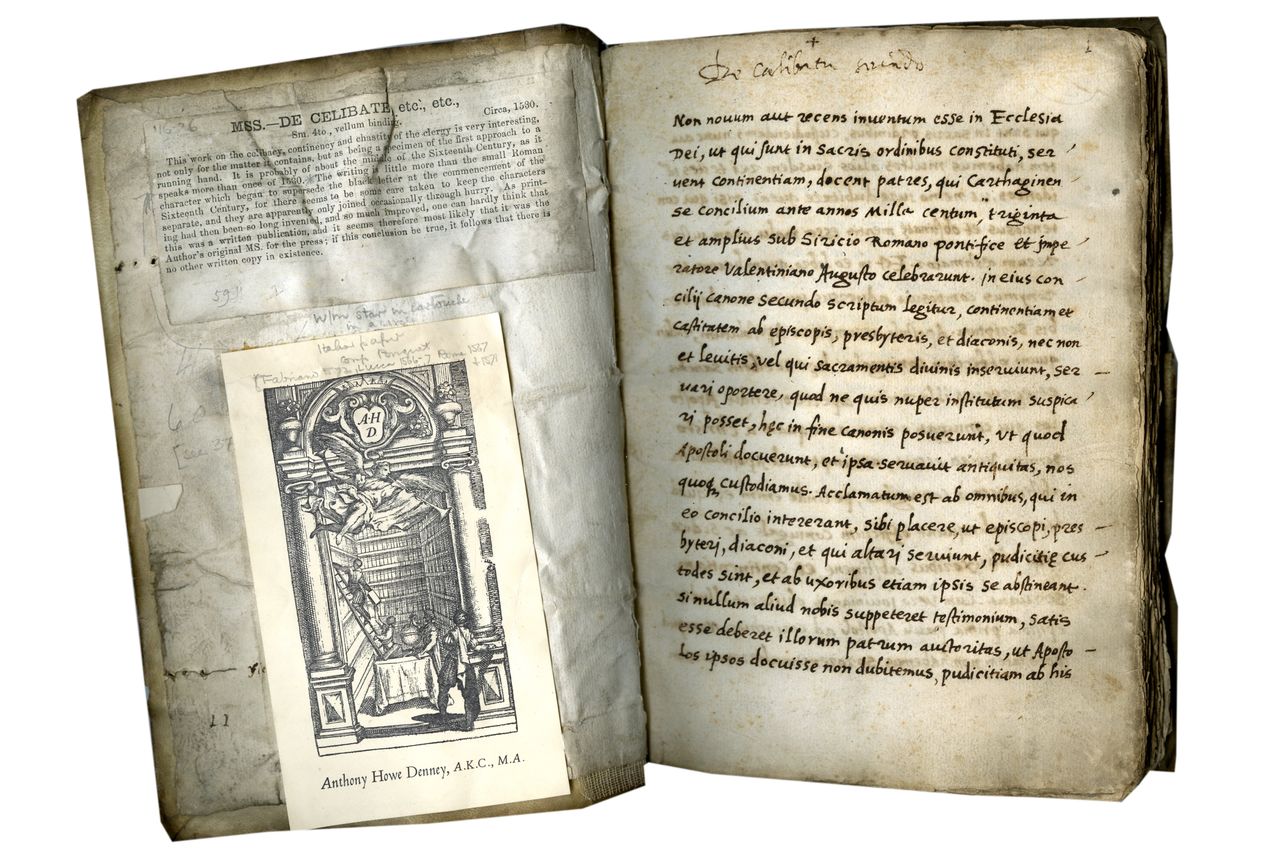 MSS.—DE CELIBATE, etc., etc.,
Sm. 4to., vellum binding. Circa, 1530.
This work on the celibacy, continency and chastity of the clergy is very interesting,
not only for the matter it contains, but as being a specimen of the first approach to a
running hand. It is probably of about the middle of the Sixteenth Century, as it
speaks more than once of 1530. The writing is little more than the small Roman
character which began to supersede the black letter at the commencement of the
Sixteenth Century, for there seems to be some care taken to keep the characters
separate, and they are apparently only joined occasionally through hurry. As print-
ing had then been so long invented, and so much improved, one can hardly think that
this was a written publication, and it seems therefore most likely that it was the
Author's original MS. for the press; if this conclusion be true, it follows that there is
no other written copy in existence.
W/m star in cartouche
Italian paper
A·H
D
Anthony Howe Denney, A.K.C., M.A.
1
De Calibatu
Non nouum aut recens inuentum esse in Ecclesia
Dei, ut qui sunt in Sacris ordinibus constituti, ser
uent continentiam, docent patres, qui Carthaginen
se Concilium ante annos Mille centum, triginta
et amplius sub Siricio Romano pontifice et Impe
ratore Valentiniano Augusto celebrarunt. In eius con
cilij canone secundo scriptum legitur, continentiam et
castitatem ab episcopis, presbyteris, et diaconis, nec non
et leuitis, vel qui sacramentis diuinis inseruiunt, ser
uari oportere, quod ne quis nuper institutum suspica
ri posset, hęc in fine canonis posuerunt, ut quod
Apostoli docuerunt, et ipsa seruauit antiquitas, nos
quoq custodiamus. Acclamatum est ab omnibus, qui in
eo concilio intererant, sibi placere, ut episcopi, pres
byteri, diaconi, et qui altari seruiunt, pudicitię cus
todes sint, et ab uxoribus etiam ipsis se abstineant.
Si nullum aliud nobis suppeteret testimonium, satis
esse deberet illorum patrum auctoritas, ut Aposto
los ipsos docuisse non dubitemus, pudicitiam ab his